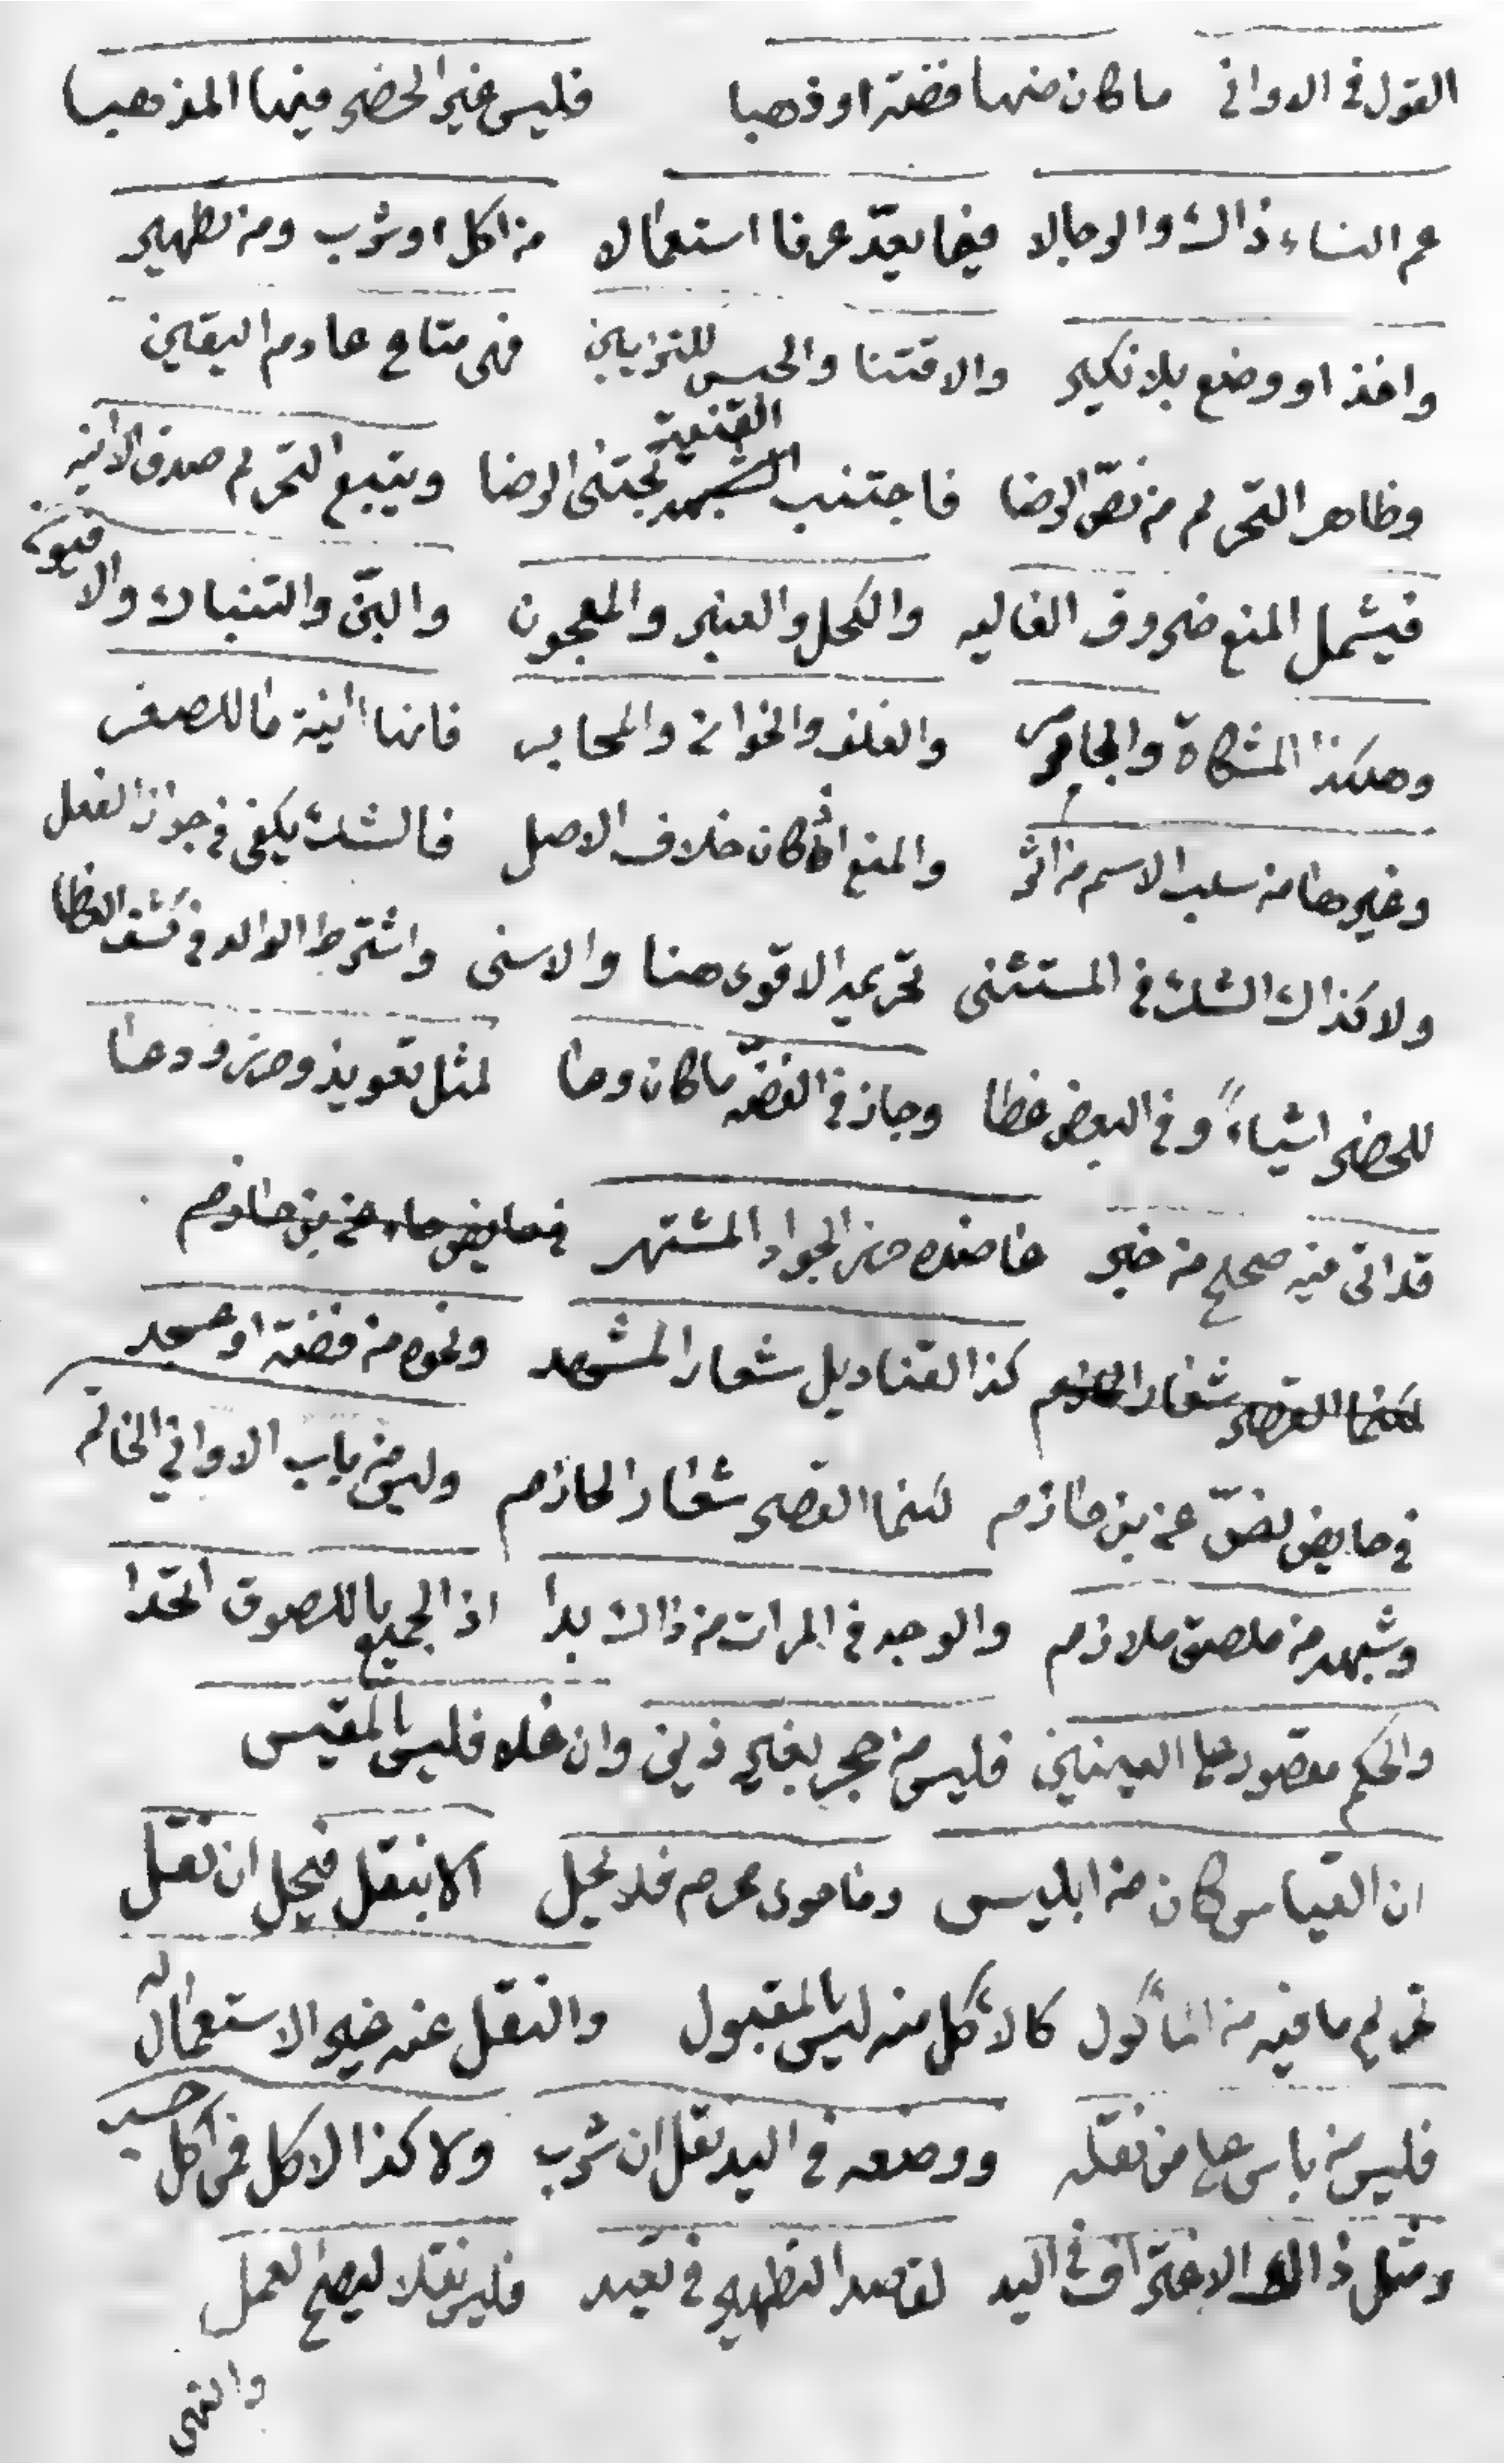 القول في الاواني ما كان منها فضة او ذهبا فليس غير الحضر فيها المذهبا
عم النساء ذاك والرجالا فيما يعدّ عرفا استعمالا من اكل او شرب ومن تطهير
واخذ او وضع بلا نكير والاقتنا والحبس للتزيين فهي متاع عادم اليقين
وظاهر التحريم من نصّ الرضا فاجتنب القنية تجتنى الرضا ويتبع التحريم صدق الانيه
فيشمل المنع ضروف الغاليه والكحل والعنبر والمعجون والبنّ والتنباك والافيون
وهكذا المشكاة والمجامر والغلف والخوان والمحابر فانها انية ما للصفر
وغيرها من سلب الاسم من اثر والمنع اذ كان خلاف الاصل فالشك يكفى في جواز الفعل
ولا كذاك الشك في المستثنى تحريمه الاقوى هنا والاسنى واشترط الوالد في كشف الغطا
للحضر اشياءً وفي البعض غطا وجاز في الفضّه ما كان وعا لمثل تعويذ وحرز ودعا
قد اتى فيه صحيح من خبر عاضده حرز الجواد المشتهر
كذا القناديل شعار المشهد ونحوه من فضة او عسجد
في حايض نصّ عن بن حازم لكنما القصر شعار الحازم وليس من باب الاواني الخاتم
وشبهه من ملصق ملازم والوجه في المرات من ذاك بدا اذ الجميع باللصوق اتحدا
والحكم مقصور على العينين فليس من حجر بغير ذين وان غلا فليس بالمقيس
ان القياس كان من ابليس وما حوى محرم فلا يحل الا بنقل فيحل ان نقل
تحريم ما فيه من المأكول كالأكل منه ليس بالمقبول والنقل عنه غير الاستعمال له
فليس من باس على من نقله ووضعه في اليد نقل ان شرب ولا كذا الاكل فمن اكل حسب
ومثل ذاك الاغتراف في اليد لقاصد التطهير في تعبد فليس نقلا ليصح العمل
والنهى